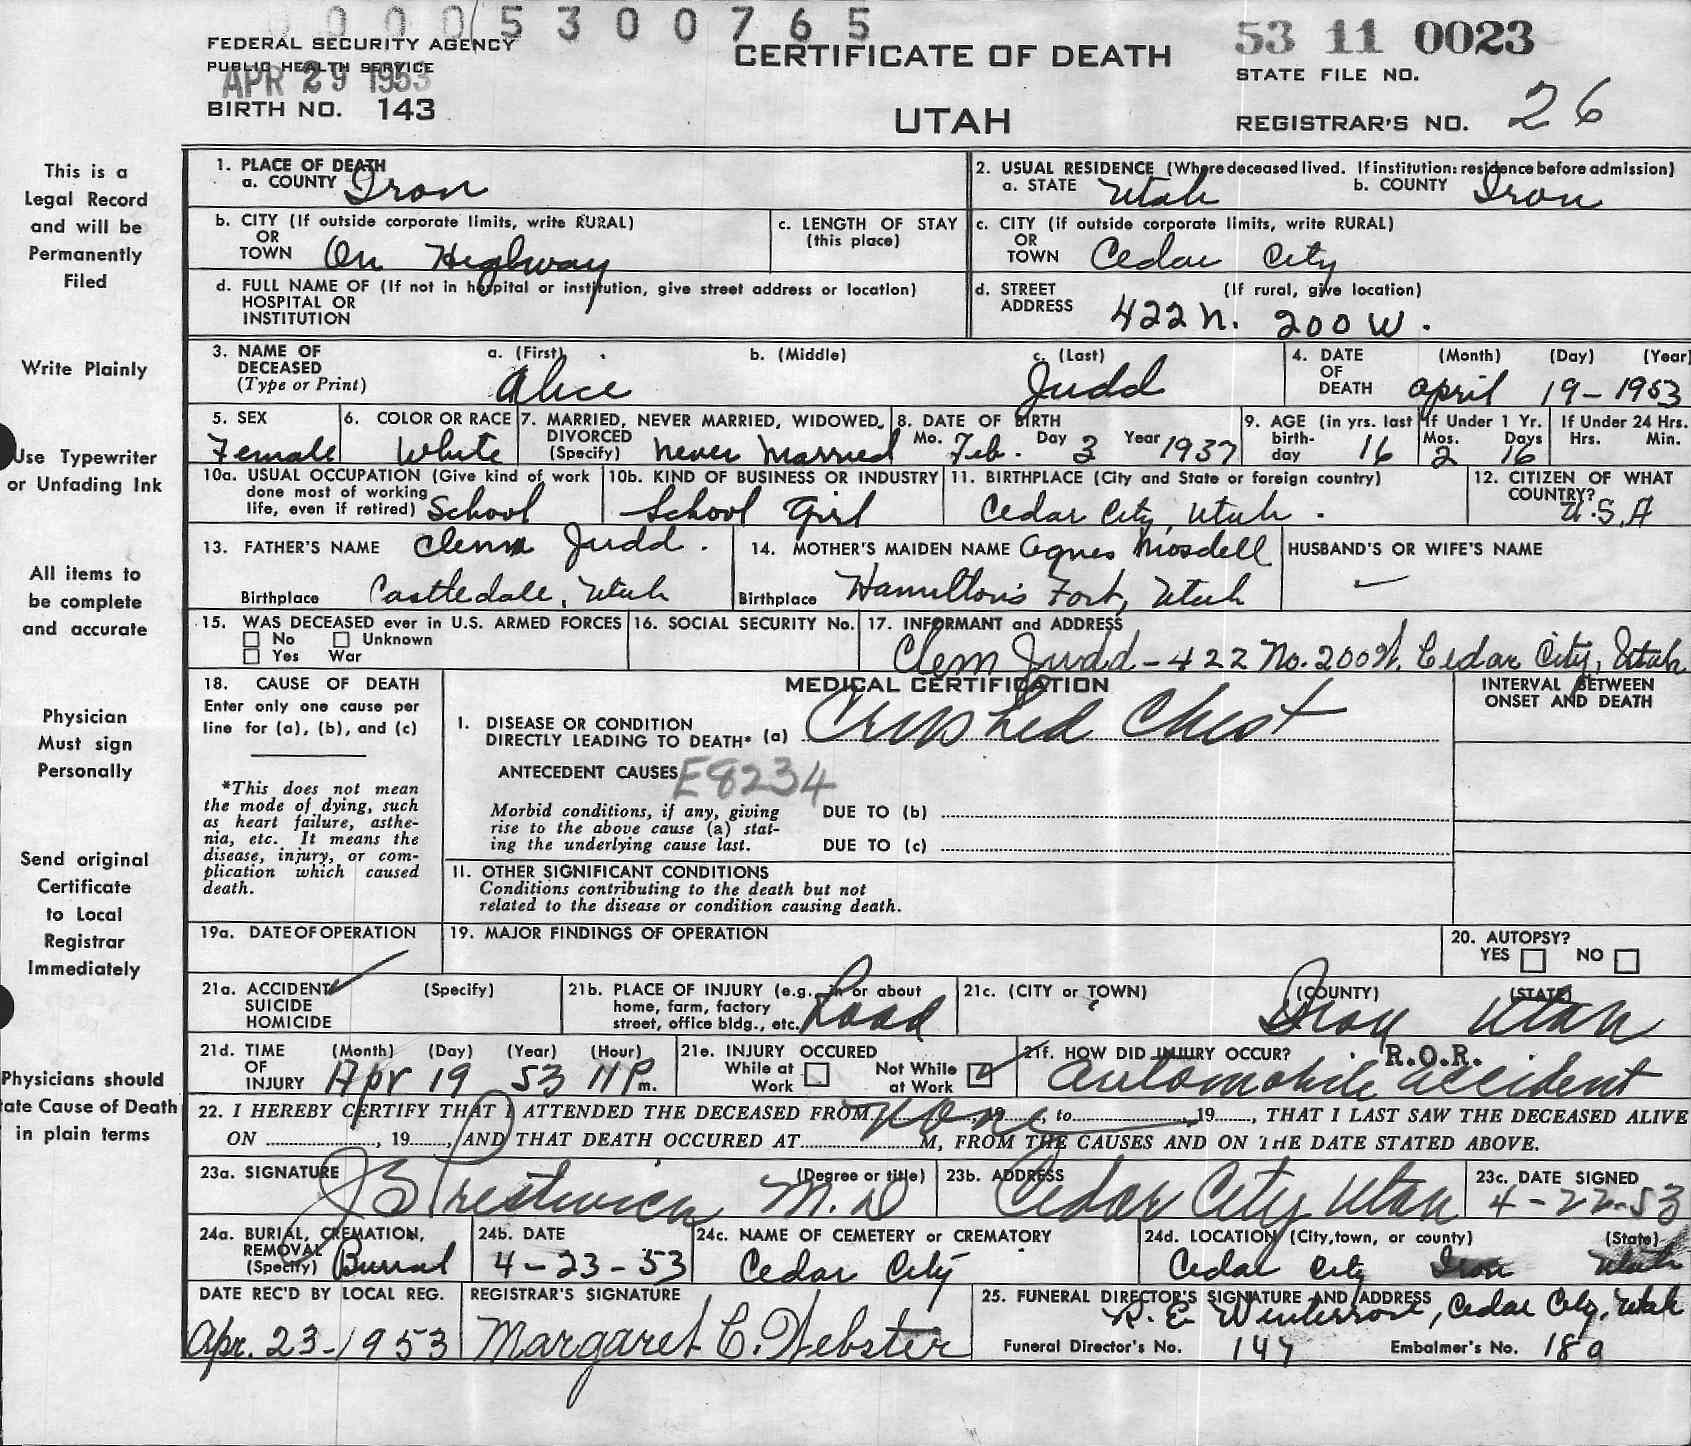 0 0 0 0 5 3 0 0 7 6 5
53 11 0023
FEDERAL SECURITY AGENCY
PUBLIC HEALTH SERVICE
APR 29 1953
BIRTH NO. 143
CERTIFICATE OF DEATH
UTAH
STATE FILE NO.
REGISTRAR'S NO. 26
This is a
Legal Record
and will be
Permanently
Filed
Write Plainly
Use Typewriter
or Unfading Ink
All items to
be complete
and accurate
Physician
Must sign
Personally
Send original
Certificate
to Local
Registrar
Immediately
Physicians should
ate Cause of Death
in plain terms
1. PLACE OF DEATH
a. COUNTY Iron
2. USUAL RESIDENCE (Where deceased lived. If institution: residence before admission)
a. STATE Utah b. COUNTY Iron
b. CITY (If outside corporate limits, write RURAL)
OR
TOWN On Highway
c. LENGTH OF STAY
(this place)
c. CITY (if outside corporate limits, write RURAL)
OR
TOWN Cedar City
d. FULL NAME OF (If not in hospital or institution, give street address or location)
HOSPITAL OR
INSTITUTION
d. STREET (If rural, give location)
ADDRESS 422 N. 200 W.
3. NAME OF
DECEASED
(Type or Print)
a. (First) b. (Middle) c. (Last)
Alice Judd
4. DATE (Month) (Day) (Year)
OF
DEATH April 19-1953
5. SEX
Female
6. COLOR OR RACE
White
7. MARRIED, NEVER MARRIED, WIDOWED,
DIVORCED
(Specify) Never Married
8. DATE OF BIRTH
Mo. Feb. Day 3 Year 1937
9. AGE (in yrs. last
birth-
day 16
If Under 1 Yr.
Mos. Days
2 16
If Under 24 Hrs.
Hrs. Min.
10a. USUAL OCCUPATION (Give kind of work
done most of working
life, even if retired) School
10b. KIND OF BUSINESS OR INDUSTRY
School Girl
11. BIRTHPLACE (City and State or foreign country)
Cedar City, Utah.
12. CITIZEN OF WHAT
COUNTRY?
U.S.A
13. FATHER'S NAME Clem Judd.
Birthplace Castledale, Utah
14. MOTHER'S MAIDEN NAME Agnes Mosdell
Birthplace Hamilton's Fort, Utah
HUSBAND'S OR WIFE'S NAME
15. WAS DECEASED ever in U.S. ARMED FORCES
No Unknown
Yes War
16. SOCIAL SECURITY No.
17. INFORMANT and ADDRESS
Clem Judd-422 No. 200 W. Cedar City, Utah
18. CAUSE OF DEATH
Enter only one cause per
line for (a), (b), and (c)
*This does not mean
the mode of dying, such
as heart failure, asthe-
nia, etc. It means the
disease, injury, or com-
plication which caused
death.
MEDICAL CERTIFICATION
1. DISEASE OR CONDITION
DIRECTLY LEADING TO DEATH* (a) Crushed Chest
ANTECEDENT CAUSES E8234
Morbid conditions, if any, giving
rise to the above cause (a) stat-
ing the underlying cause last.
DUE TO (b)
DUE TO (c)
11. OTHER SIGNIFICANT CONDITIONS
Conditions contributing to the death but not
related to the disease or condition causing death.
INTERVAL BETWEEN
ONSET AND DEATH
19a. DATE OF OPERATION
19. MAJOR FINDINGS OF OPERATION
20. AUTOPSY?
YES NO
21a. ACCIDENT (Specify)
SUICIDE
HOMICIDE
21b. PLACE OF INJURY (e.g., in or about
home, farm, factory
street, office bldg., etc. Road
21c. (CITY or TOWN) (COUNTY) (STATE)
Iron Utah
21d. TIME (Month) (Day) (Year) (Hour)
OF
INJURY Apr 19 53 11 P m.
21e. INJURY OCCURED
While at Not While
Work at Work
21f. HOW DID INJURY OCCUR? R.O.R.
Automobile accident
22. I HEREBY CERTIFY THAT I ATTENDED THE DECEASED FROM none, 19, to, 19, THAT I LAST SAW THE DECEASED ALIVE
ON, 19, AND THAT DEATH OCCURED AT M, FROM THE CAUSES AND ON THE DATE STATED ABOVE.
23a. SIGNATURE (Degree or title)
J S Prestwich M.D
23b. ADDRESS
Cedar City Utah
23c. DATE SIGNED
4-22-53
24a. BURIAL, CREMATION,
REMOVAL
(Specify) Burial
24b. DATE
4-23-53
24c. NAME OF CEMETERY or CREMATORY
Cedar City
24d. LOCATION (City, town, or county) (State)
Cedar City Iron Utah
DATE REC'D BY LOCAL REG.
Apr. 23-1953
REGISTRAR'S SIGNATURE
Margaret C. Webster
25. FUNERAL DIRECTOR'S SIGNATURE AND ADDRESS
R. E. Winterrose, Cedar City, Utah
Funeral Director's No. 147 Embalmer's No. 189